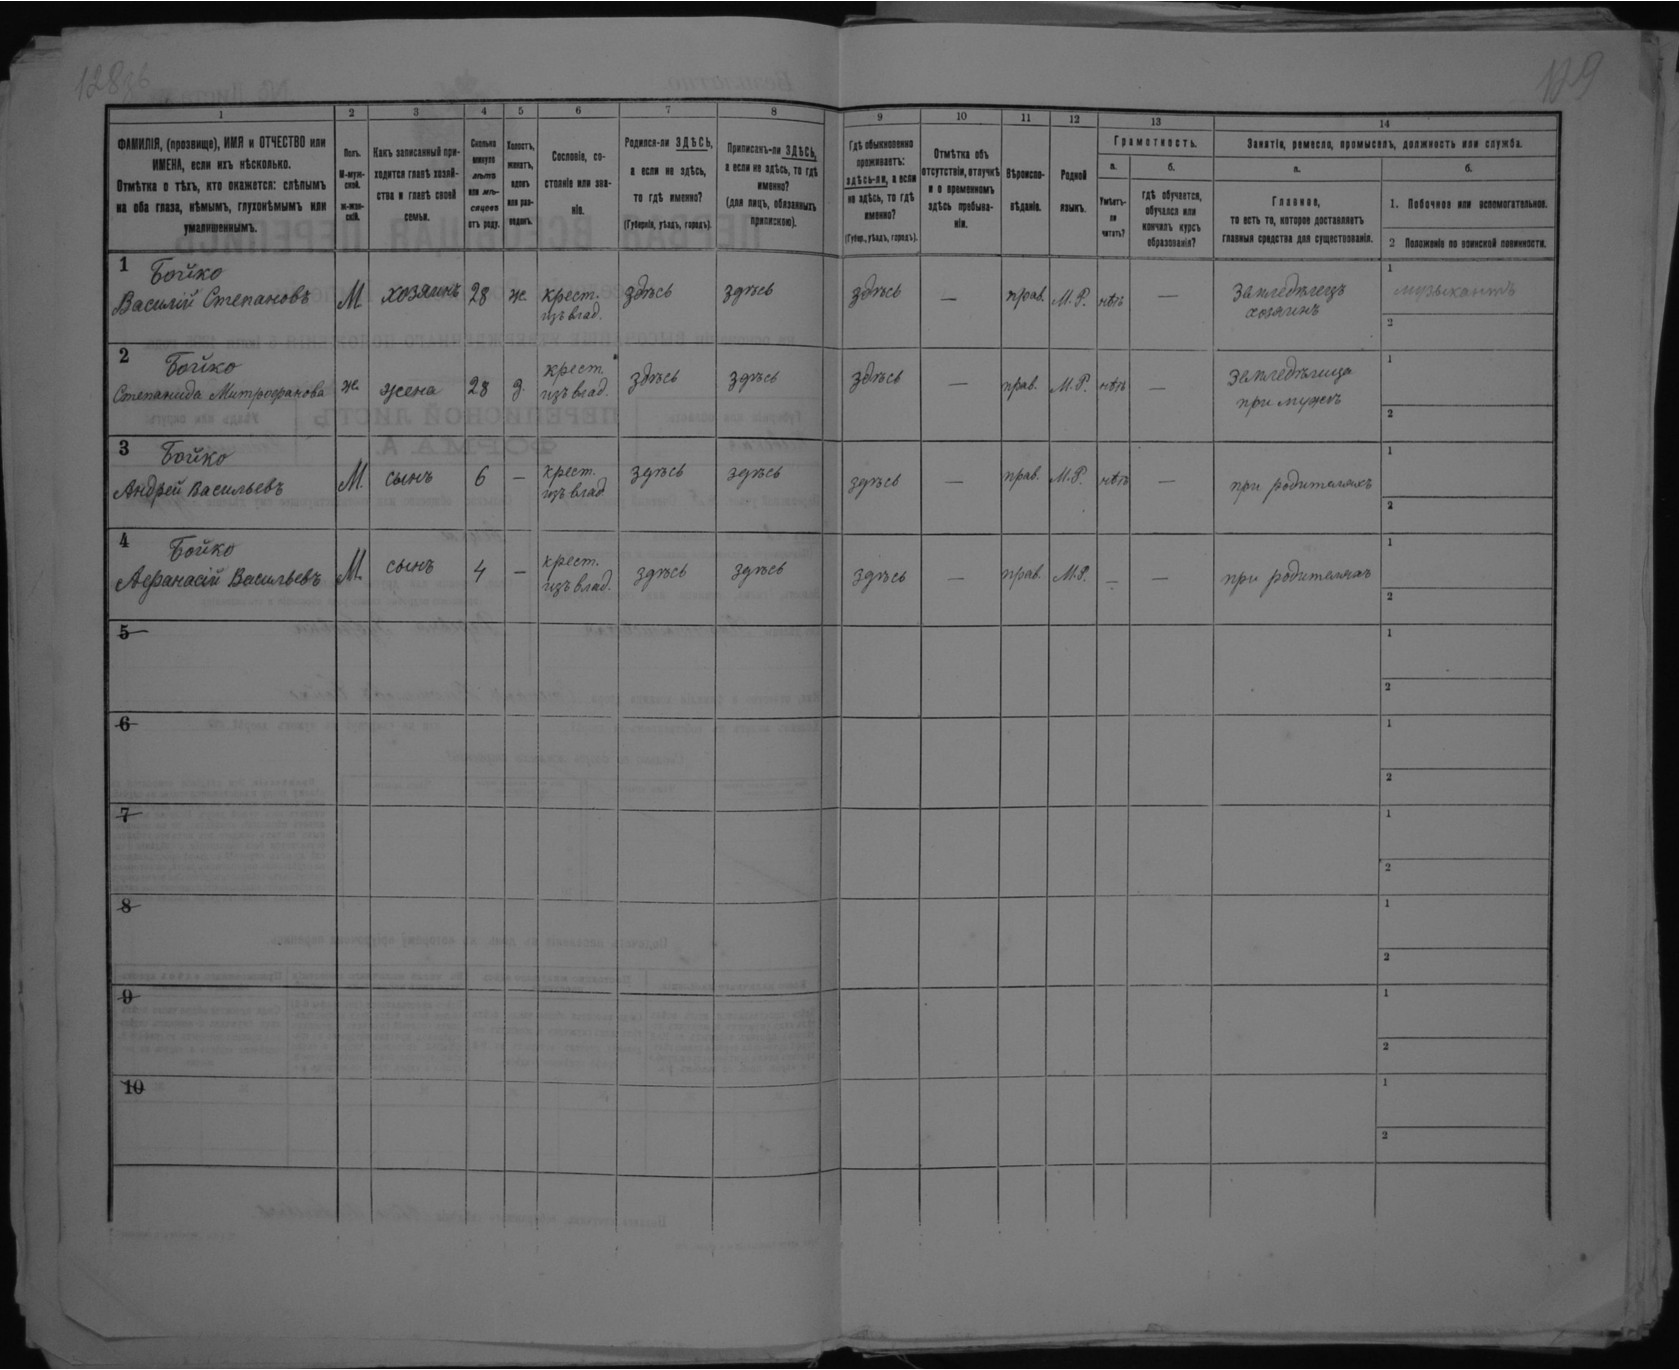 129
1 2 3 4 5 6 7 8 9 10 11 12 13 14
ФАМИЛІЯ, (прозвище), ИМЯ и ОТЧЕСТВО или
ИМЕНА, если ихъ нѣсколько.
Отмѣтка о тѣхъ, кто окажется: слѣпымъ
на оба глаза, нѣмымъ, глухонѣмымъ или
умалишеннымъ.
Полъ.
М-муж-
ской.
ж-жен-
скій.
Какъ записанный при-
ходится главѣ хозяй-
ства и главѣ своей
семьи.
Сколько
минуло
лѣтъ
или мѣ-
сяцевъ
отъ роду.
Холостъ,
женатъ,
вдовъ
или раз-
веденъ.
Сословіе, со-
стояніе или зва-
ніе.
Родился-ли ЗДѢСЬ,
а если не здѣсь,
то гдѣ именно?
(Губернія, уѣздъ, городъ).
Приписанъ-ли ЗДѢСЬ,
а если не здѣсь, то гдѣ
именно?
(для лицъ, обязанныхъ
припискою).
Гдѣ обыкновенно
проживаетъ:
здѣсь-ли, а если
не здѣсь, то гдѣ
именно?
(Губер., уѣздъ, городъ).
Отмѣтка объ
отсутствіи, отлучкѣ
и о временномъ
здѣсь пребыва-
ніи.
Вѣроиспо-
вѣданіе.
Родной
языкъ.
Грамотность.
а.
Умѣетъ-
ли
читать?
б.
гдѣ обучается,
обучался или
кончилъ курсъ
образованія?
Занятіе, ремесло, промыселъ, должность или служба.
а.
Главное,
то есть то, которое доставляетъ
главныя средства для существованія.
б.
1. Побочное или вспомогательное.
2 Положеніе по воинской повинности.
1 Бойко
Василій Степановъ М хозяинъ 28 ж. крест. изъ влад. здѣсь здѣсь здѣсь — прав. М.Р. нѣтъ — Земледѣлецъ хозяинъ 1 музыкантъ
2
2 Бойко
Степанида Митрофанова ж. жена 28 з. крест. изъ влад. здѣсь здѣсь здѣсь — прав. М.Р. нѣтъ — Земледѣлица при мужѣ 1
2
3 Бойко
Андрей Васильевъ М. сынъ 6 — крест. изъ влад здѣсь здѣсь здѣсь — прав. М.Р. нѣтъ — при родителяхъ 1
2
4 Бойко
Афанасій Васильевъ М. сынъ 4 — крест. изъ влад. здѣсь здѣсь здѣсь — прав. М.Р. — — при родителяхъ 1
2
5 1
2
6 1
2
7 1
2
8 1
2
9 1
2
10 1
2